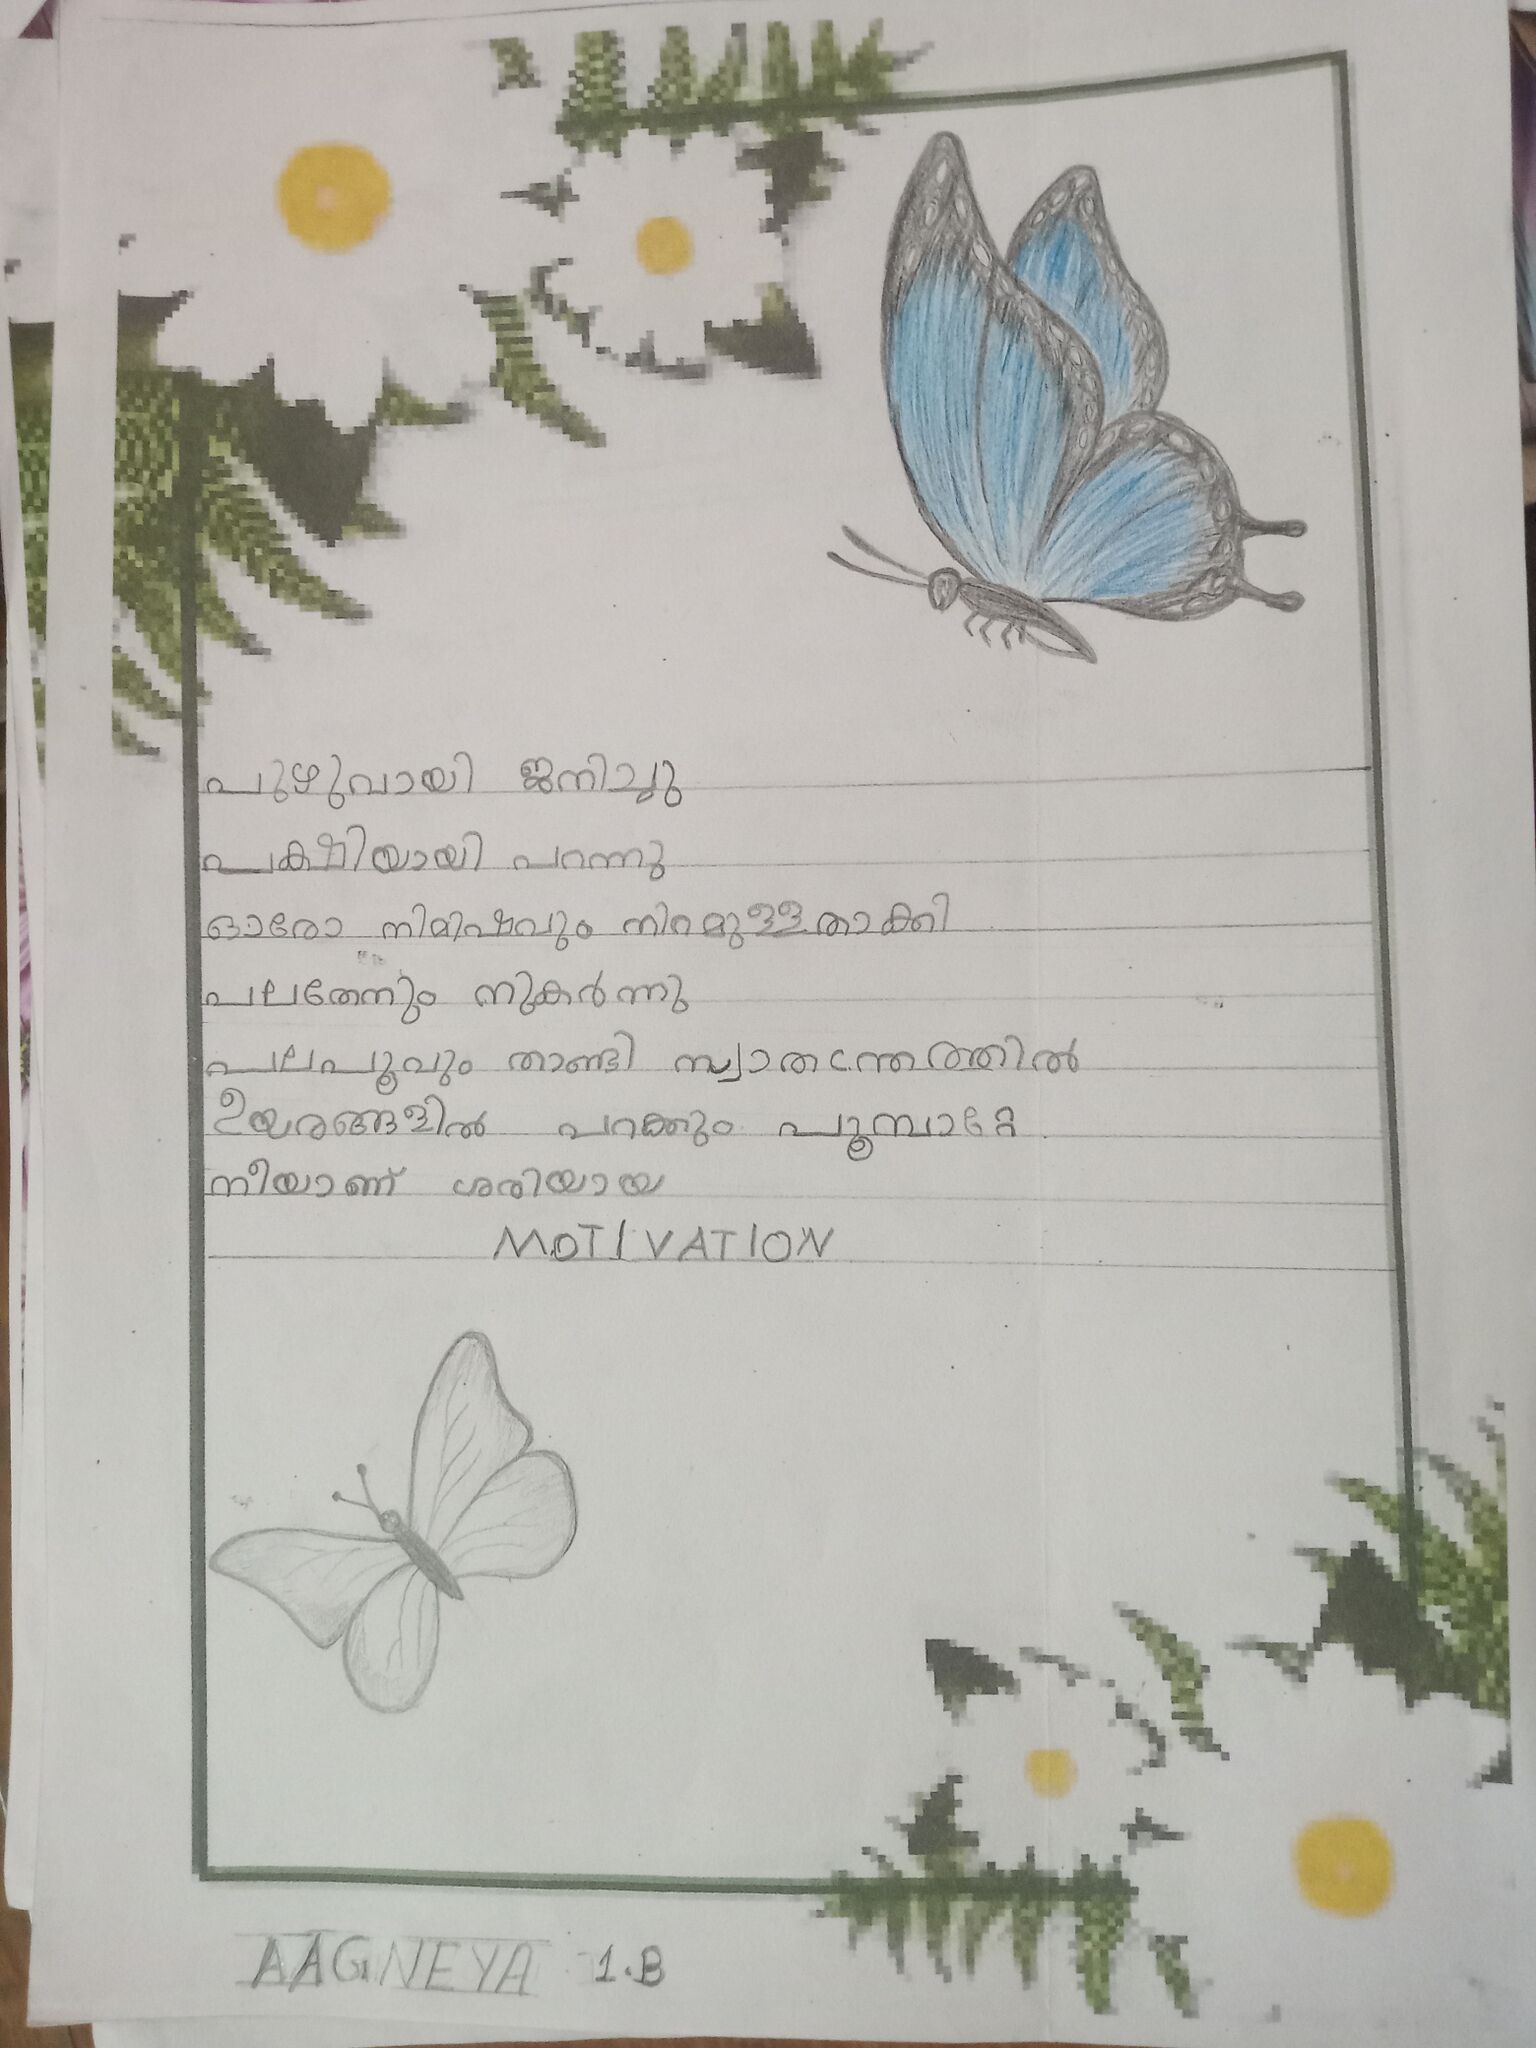 പുഴുവായി ജനിച്ചു
പക്ഷിയായി പറന്നു
ഓരോ നിമിഷവും നിറമുള്ളതാക്കി
പലതേനും നുകർന്നു
പലപൂവും താണ്ടി സ്വാതന്ത്രത്തിൽ
ഉയരങ്ങളിൽ പറക്കും പൂമ്പാറ്റേ
നീയാണ് ശരിയായ
MOTIVATION
AAGNEYA 1.B